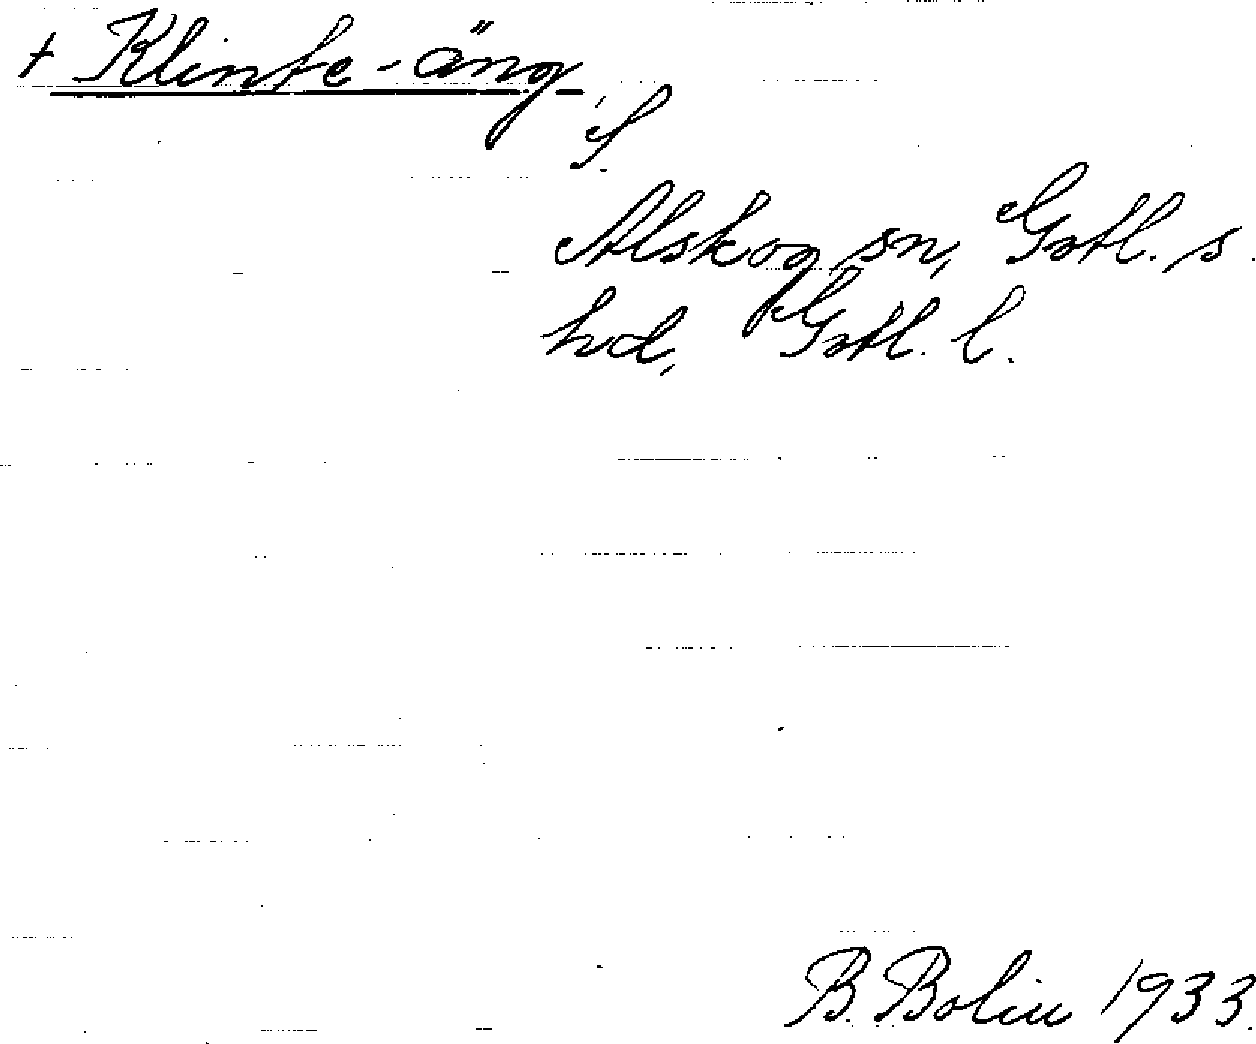 + Klinte-äng
S.
Alskog sn, Gotl. s.
hd, Gotl. l.
B. Bolin 1933.